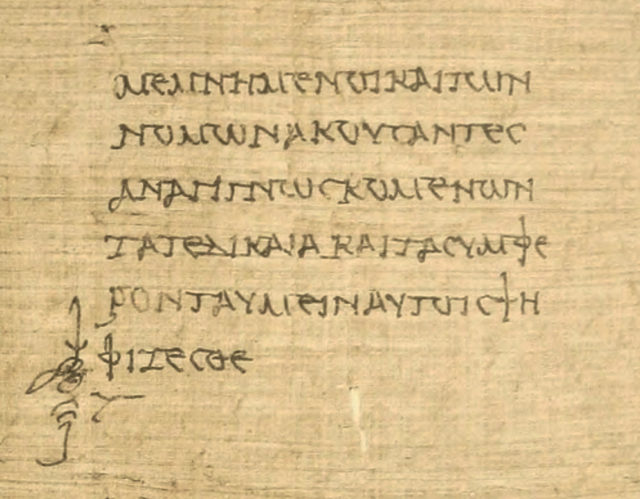 ΜΕΜΝΗΜΕΝΟΙΚΑΙΤΩΝ
ΝΟΜΩΝΑΚΟΥϹΑΝΤΕϹ
ΑΝΑΓΙΓΝΩϹΚΟΜΕΝΩΝ
ΤΑΤΕΔΙΚΑΙΑΚΑΙΤΑϹΥΜΦΕ
ΡΟΝΤΑΥΜΕΙΝΑΥΤΟΙϹΨΗ
ΦΙΖΕϹΘΕ